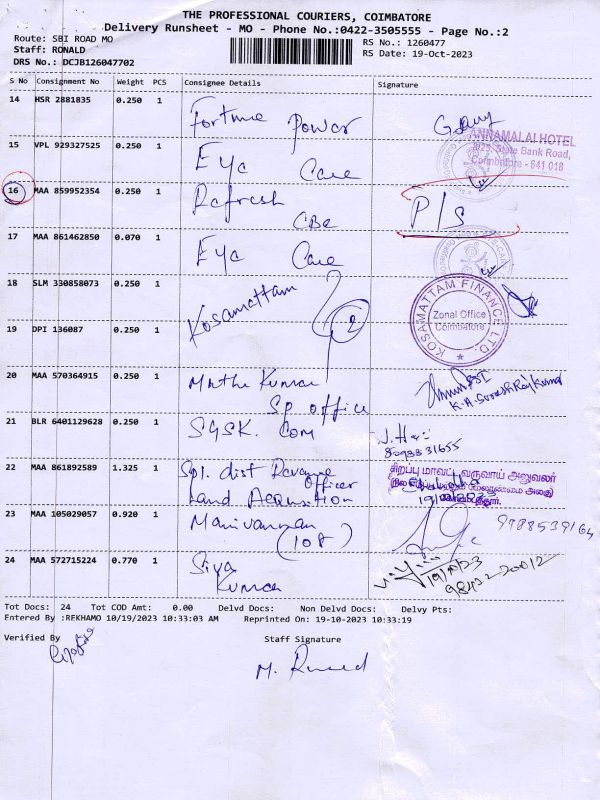 THE PROFESSIONAL COURIERS, COIMBATORE
Delivery Runsheet - MO - Phone No.:0422-3505555 - Page No.:2
Route: SBI ROAD MO
RS No.: 1260477
Staff: RONALD
RS Date: 19-Oct-2023
DRS No.: DCJB126047702
S No Consignment No Weight PCS Consignee Details Signature
14 HSR 2881835 0.250 1 Fortune Power
ANNAMALAI HOTEL
State Bank Road,
Coimbatore - 641 018
15 VPL 929327525 0.250 1 Eye Care
16 MAA 859952354 0.250 1 Refresh CBE P/S
17 MAA 861462850 0.070 1 Eye Care
18 SLM 330858073 0.250 1 Kosamattam
2
KOSAMATTAM FINANCE LTD.
Zonal Office
Coimbatore
19 DPI 136087 0.250 1
20 MAA 570364915 0.250 1 Muthu Kumar
Sp office
21 BLR 6401129628 0.250 1 SGSK. Com
22 MAA 861892589 1.325 1 Spl. dist Revenue
Officer
Land Acqusition
சிறப்பு மாவட்ட வருவாய் அலுவலர்
23 MAA 105029057 0.920 1 Manivannan
(108)
24 MAA 572715224 0.770 1 Siva
Kumar
19/10/23
Tot Docs: 24 Tot COD Amt: 0.00 Delvd Docs: Non Delvd Docs: Delvy Pts:
Entered By :REKHAMO 10/19/2023 10:33:03 AM Reprinted On: 19-10-2023 10:33:19
Verified By
Staff Signature